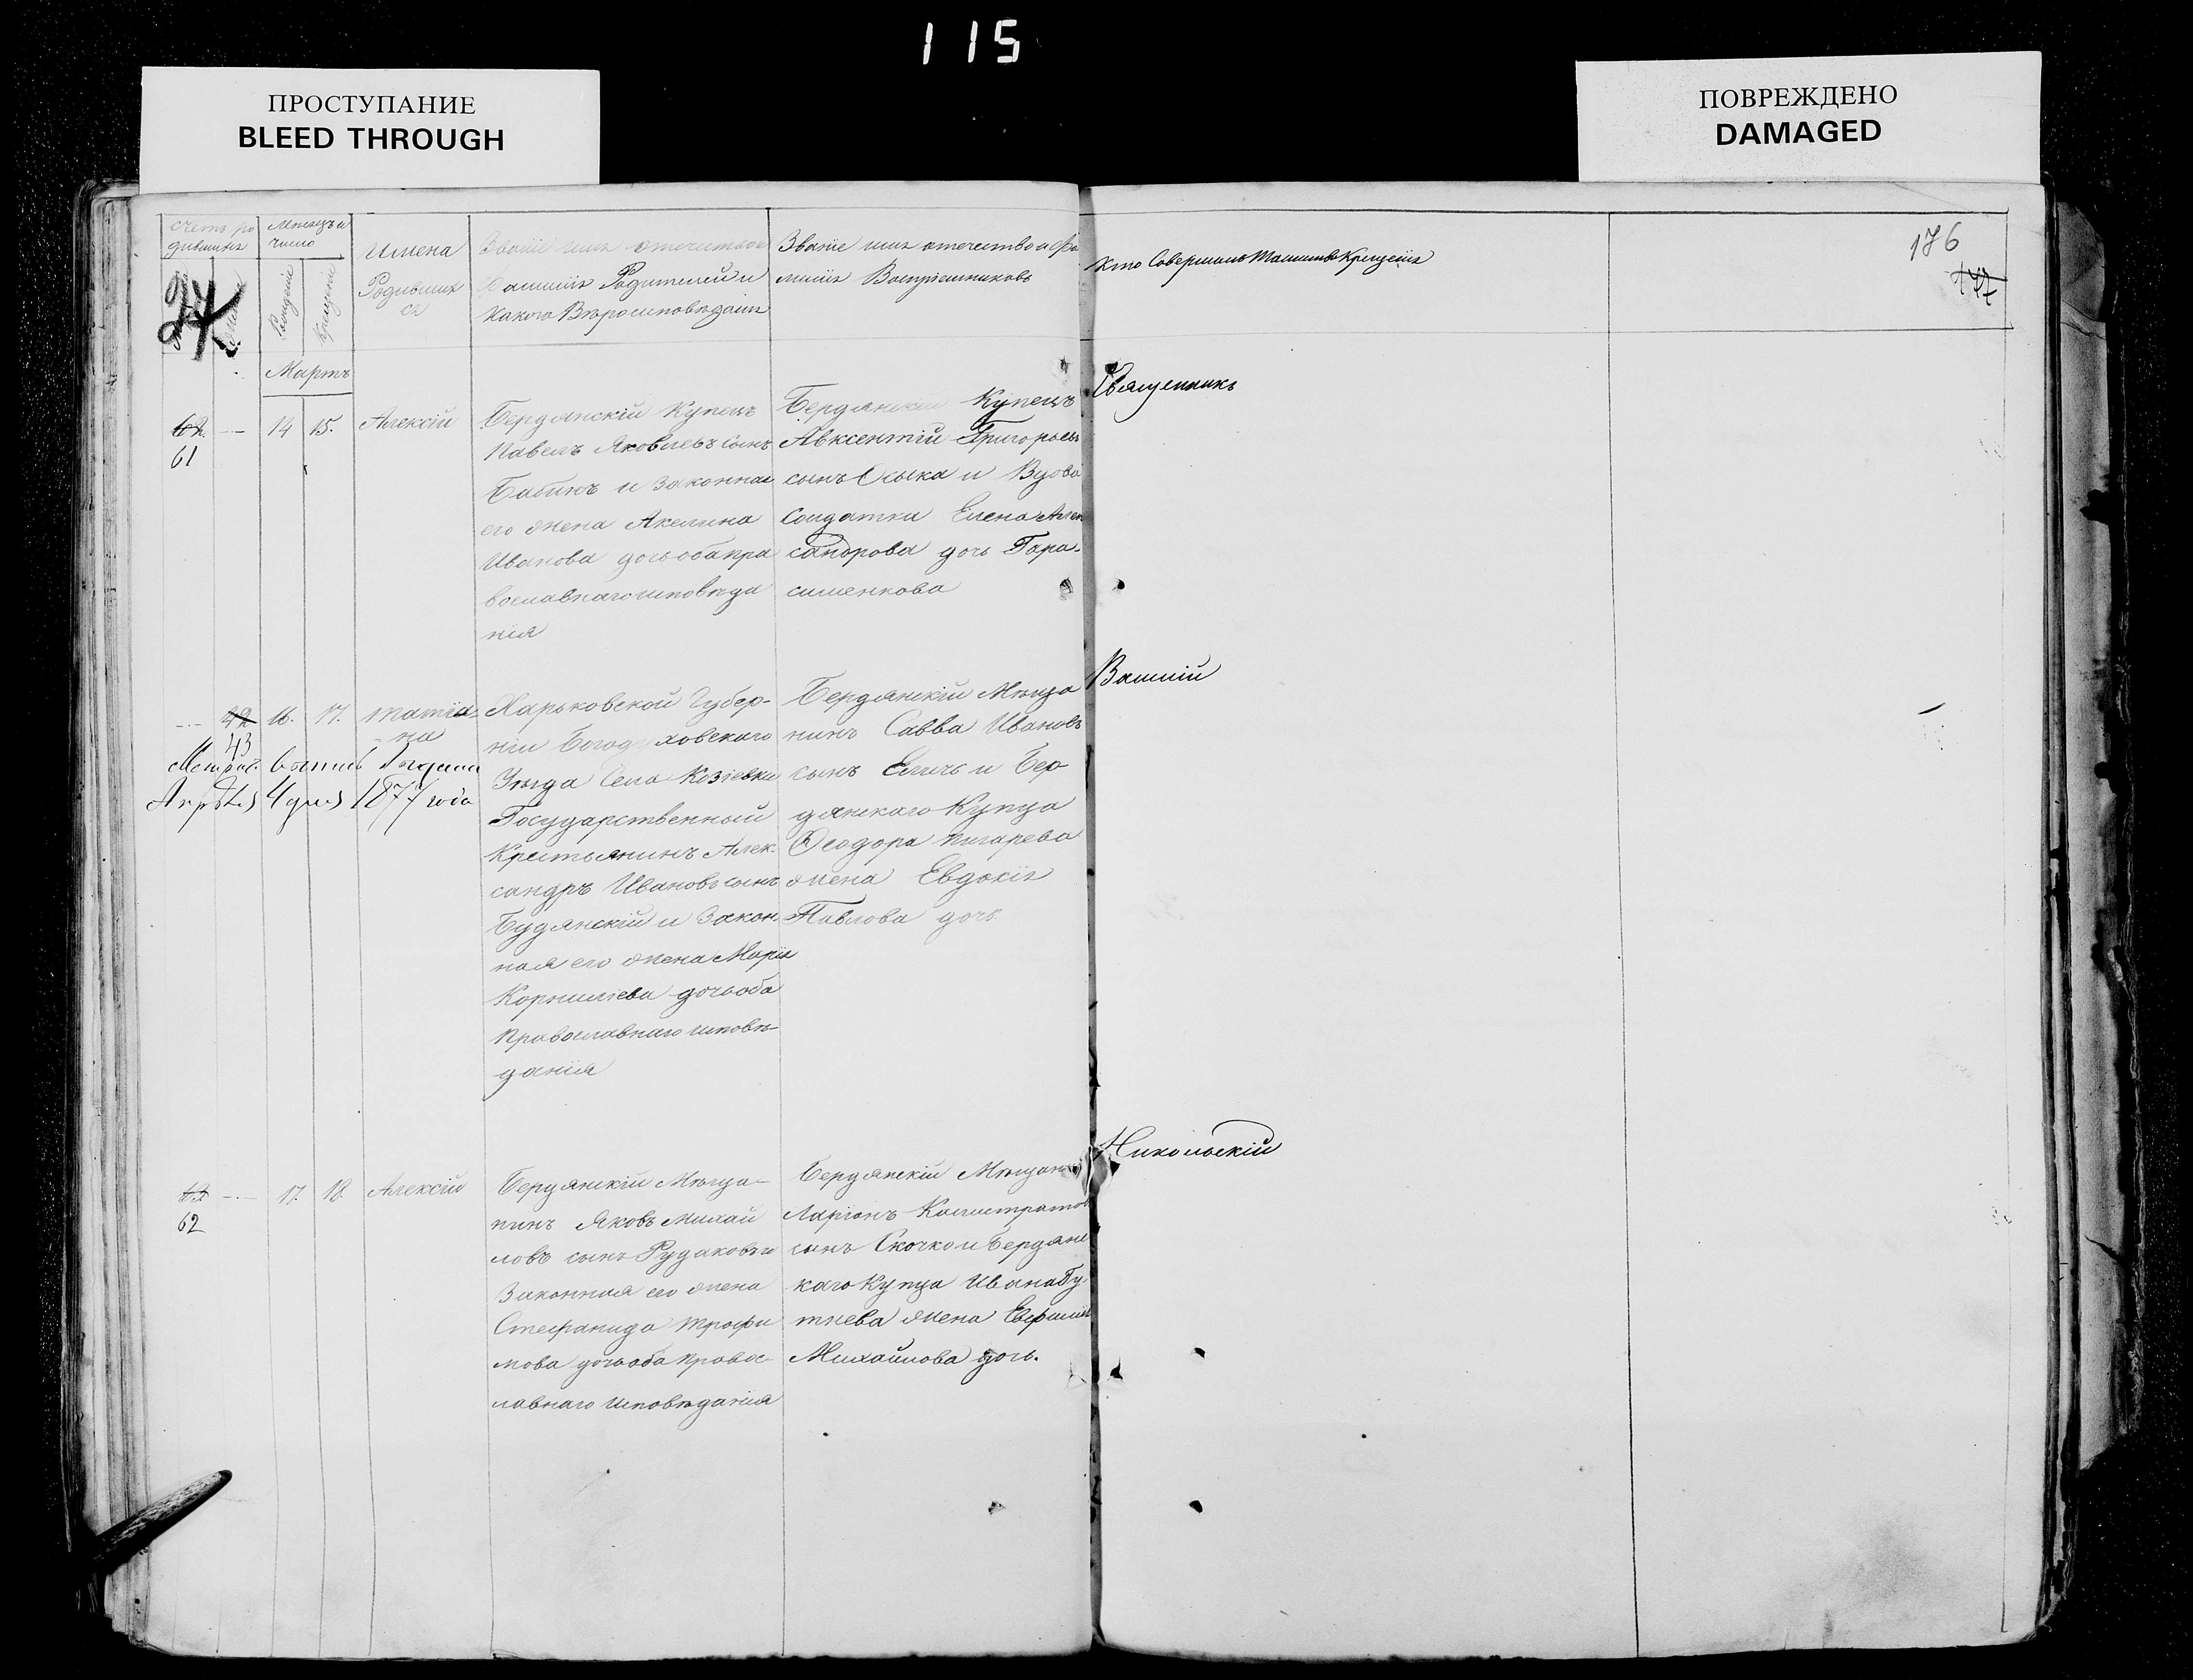 115
ПРОСТУПАНИЕ
BLEED THROUGH
ПОВРЕЖДЕНО
DAMAGED
176
177
Счетъ ро
дившихъ
Мѣсяцъ и
число
Имена
Родивших
ся
Рожденія
Крещенія
Званіе имя отечество и
Фамилія Родителей и
какого Вѣроисповѣданія
Званіе имя отечество и Фа
милія Воспріемниковъ
Кто Совершалъ Таинство Крещенія
Мартъ
62 — 14 15. Алексій
61
Бердянскій Купецъ
Павелъ Яковлевъ сынъ
Бабинъ и законная
его жена Акелина
Иванова дочь оба пра
вославнаго исповѣда
нія
Бердянскій Купецъ
Авксентій Григорьевъ
сынъ Осыка и Вдова
Солдатка Елена Алек
сандрова дочь Гара-
сименкова
Священникъ
42 16. 17. Татіа-
на
43
Метрич. выпись выдана
Апрѣля 4 дня 1877 года
Харьковской Губер-
ніи Богодуховскаго
Уѣзда Села Козіевки
Государственный
Крестьянинъ Алек-
сандръ Ивановъ сынъ
Будянскій и Закон-
ная его жена Марія
Корниліева дочь оба
Православнаго исповѣ-
данія
Бердянскій Мѣща
нинъ Савва Ивановъ
сынъ и Бер
дянскаго Купца
Ѳеодора Пигарева
жена Евдокія
Павлова дочь
Василій
63 — 17. 18. Алексій
62
Бердянскій Мѣща-
нинъ Яковъ Михай
ловъ сынъ Рудаковъ и
Законная его жена
Стефанида Трофи
мова дочь оба правос-
лавнаго исповѣданія
Бердянскій Мѣщан
Ларіонъ Калистратов
сынъ Скочко и Бердянс
каго Купца Ивана Бу-
тнева жена Евфимія
Михайлова дочь.
Никольскій